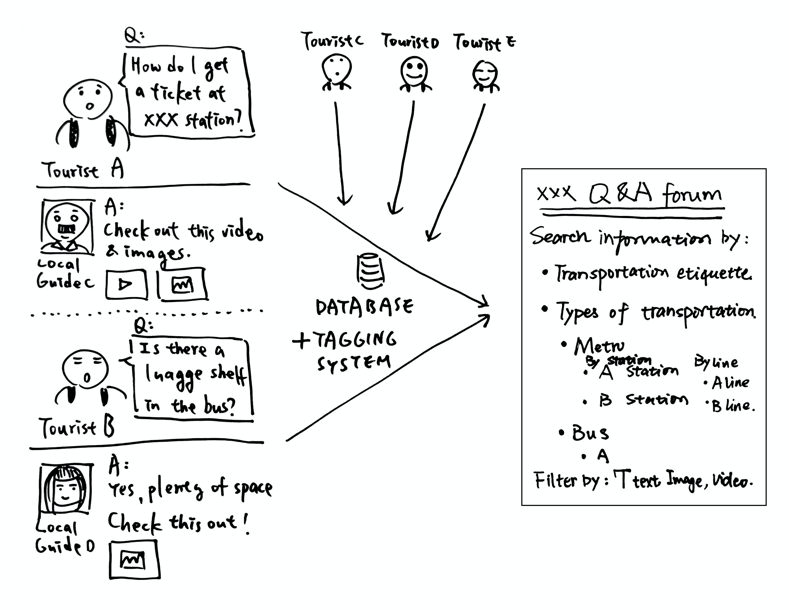 Q:
How do I get
a ticket at
XXX station?
Tourist A
A:
Check out this video
& images.
Local
Guide C
Q:
Is there a
luagge shelf
in the bus?
Tourist B
A:
Yes, plenty of space
Check this out!
Local
Guide D
Tourist C
Tourist D
Tourist E
DATABASE
+ TAGGING
SYSTEM
XXX Q&A forum
Search information by:
• Transportation etiquette
• Types of transportation
• Metro
By Station
By line
• A Station
• A line
• B Station
• B line.
• Bus
• A
Filter by: T text Image, Video.